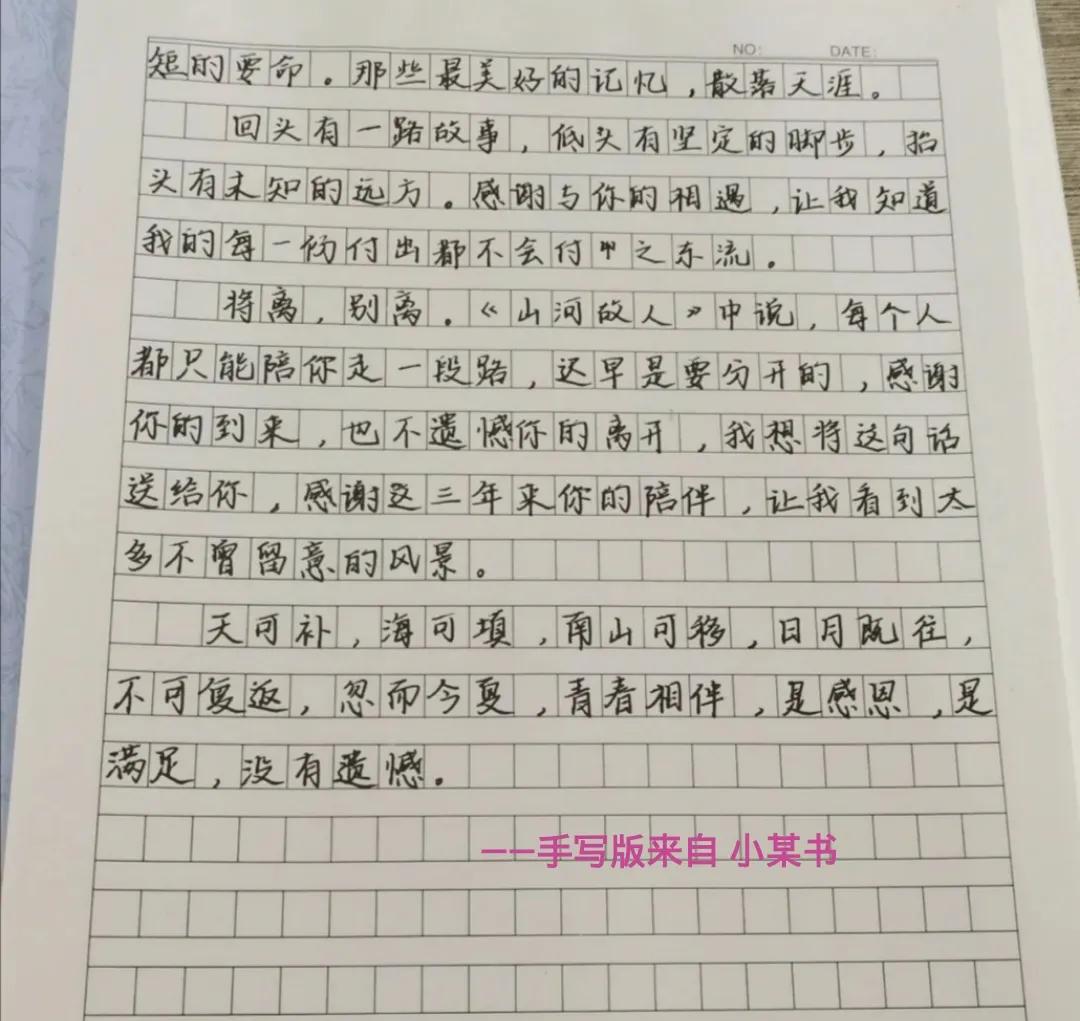 NO: DATE:
短的要命。那些最美好的记忆，散落天涯。
回头有一路故事，低头有坚定的脚步，抬
头有未知的远方。感谢与你的相遇，让我知道
我的每一份付出都不会付中之东流。
将离，别离。《山河故人》中说，每个人
都只能陪你走一段路，迟早是要分开的，感谢
你的到来，也不遗憾你的离开，我想将这句话
送给你，感谢这三年来你的陪伴，让我看到太
多不曾留意的风景。
天可补，海可填，南山可移，日月既往，
不可复返，忽而今夏，青春相伴，是感恩，是
满足，没有遗憾。
——手写版来自 小某书